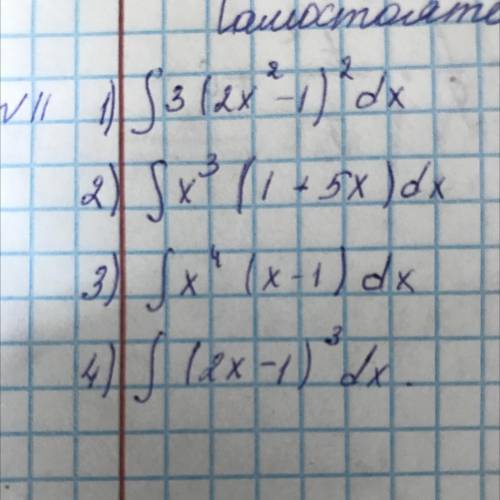 Самостоят
VII 1) ∫ 3 (2x² - 1)² dx
2) ∫ x³ (1 + 5x) dx
3) ∫ x⁴ (x - 1) dx
4) ∫ (2x - 1)³ dx.